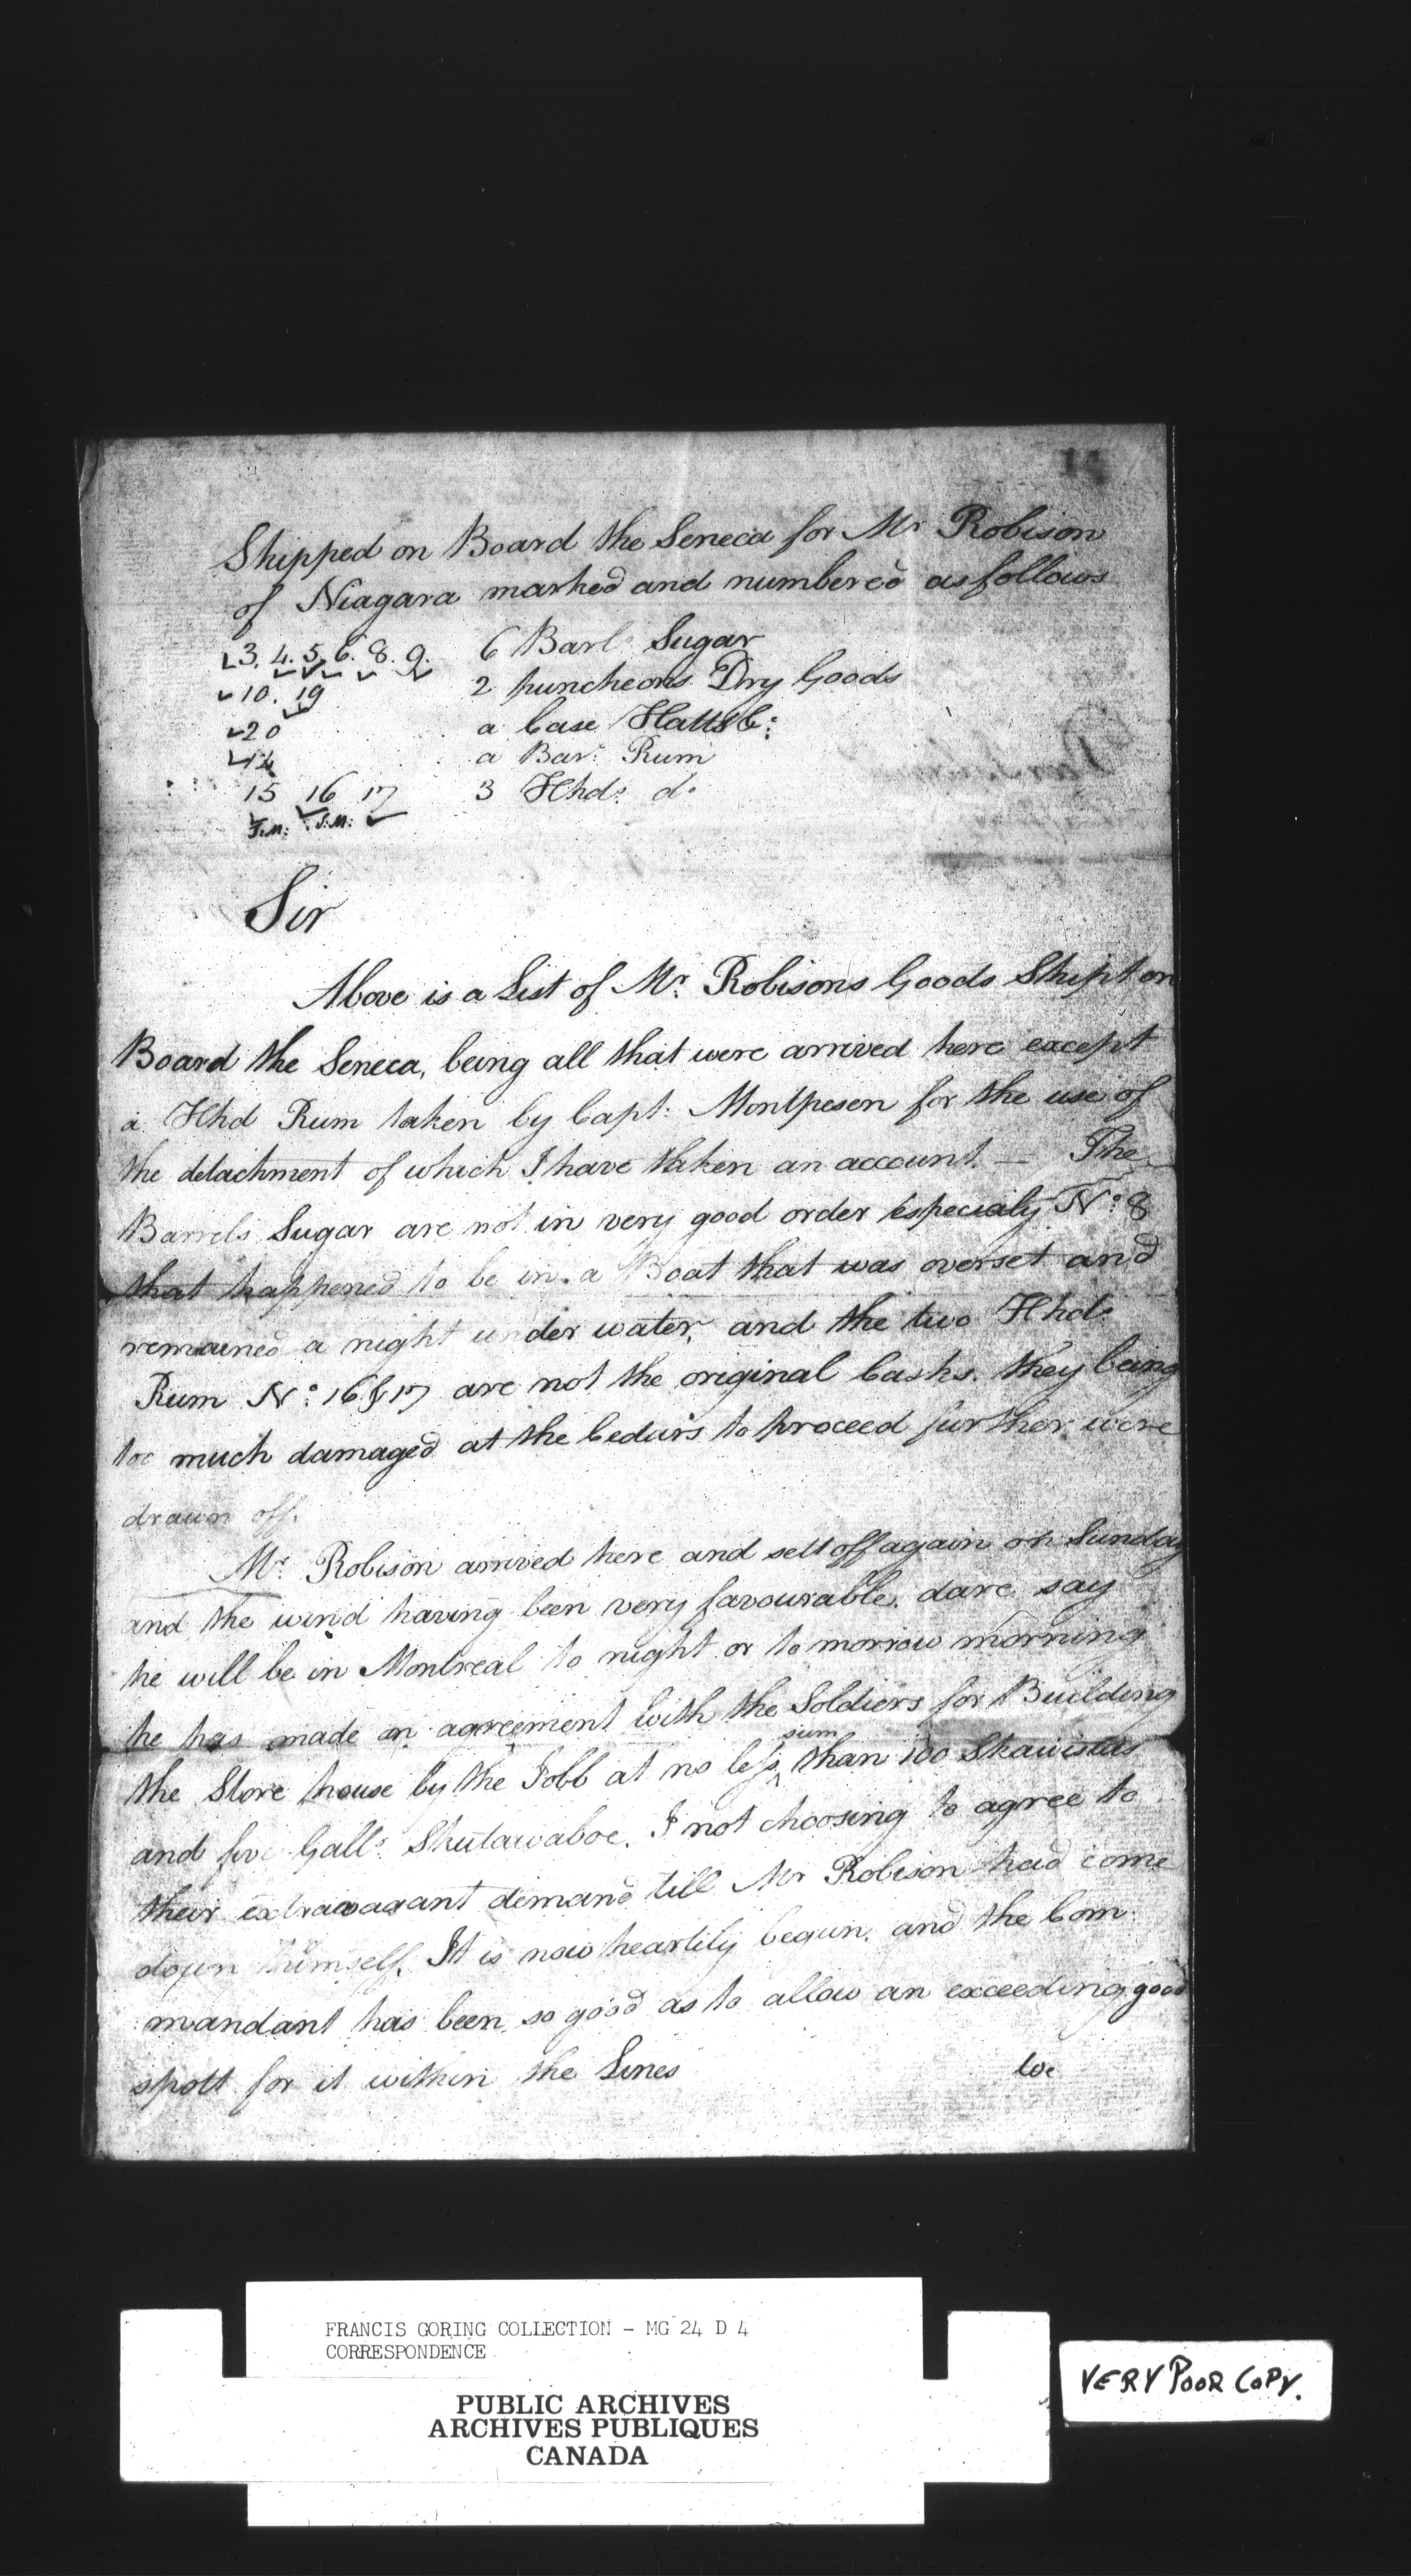 14
Shipped on Board the Seneca for Mr Robison
of Niagara marked and numbered as follows
3. 4. 5. 6. 8. 9. 6 Barls Sugar
10. 19 2 puncheons Dry Goods
20 a Case Hatts &c:
14 a Barl: Rum
15 16 17 3 Hhds: do
J.M: J.M:
Sir
Above is a List of Mr. Robisons Goods Shipt on
Board the Seneca, being all that were arrived here except
a Hhd Rum taken by Capt: Montpesen for the use of
the detachment of which I have taken an account. — The
Barrels Sugar are not in very good order especialy No: 8
that happened to be in a Boat that was overset and
remained a night under water, and the two Hhds
Rum No: 16 & 17 are not the original Casks, they being
too much damaged at the Cedars to proceed further were
drawn off.
Mr. Robison arrived here and sett off again on Sunday
and the wind having been very favourable, dare say
he will be in Montreal to night or to morrow morning
he has made an agreement with the Soldiers for Building
the Store house by the Jobb at no less sum than 100
and five Galls: I not choosing to agree to
their extravagant demand till Mr Robison had come
down himself. It is now heartily begun, and the Com
mandant has been so good as to allow an exceeding good
spott for it within the Lines
We
FRANCIS GORING COLLECTION - MG 24 D 4
CORRESPONDENCE
PUBLIC ARCHIVES
ARCHIVES PUBLIQUES
CANADA
VERY POOR COPY.